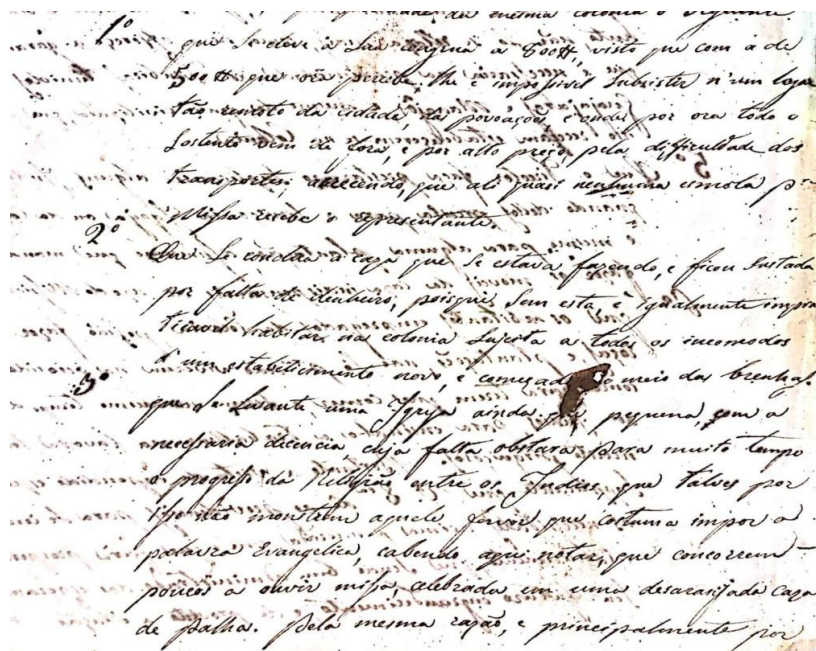 da mesma colonia o seguinte
1º que se eleve a sua congrua a 800#, visto que com a de
500# que ora percebe, lhe é impossivel subsister n'um logar
tão remoto da cidade, das povoações e onde por ora todo o
sostento vem de fora, e por alto preço, pela difficuldade dos
transportes; accrecendo, que ali quasi nenhuma esmola pª
Missa recebe o representante.
2º Que se conclua a caza que se estava fazendo, e ficou sustada
por falta de dinheiro, poisque sem esta é igualmente impra
ticavel habitar na colonia sujeita a todos os incomodos
d'um estabelicimento novo, e começado no meio das brenhas.
3º que se levante uma Igreja ainda que pequena, com a
necessaria decencia, cuja falta obstara para muito tempo
o progresso da Religião entre os Indios que talves por
isso não mostrem aquele fervor que costuma impor a
palavra Evangelica, cabendo aqui notar, que concorrem
poucos a ouvir missa, celebrada em uma desarranjada caza
de palha. Pela mesma razão, e principalmente por